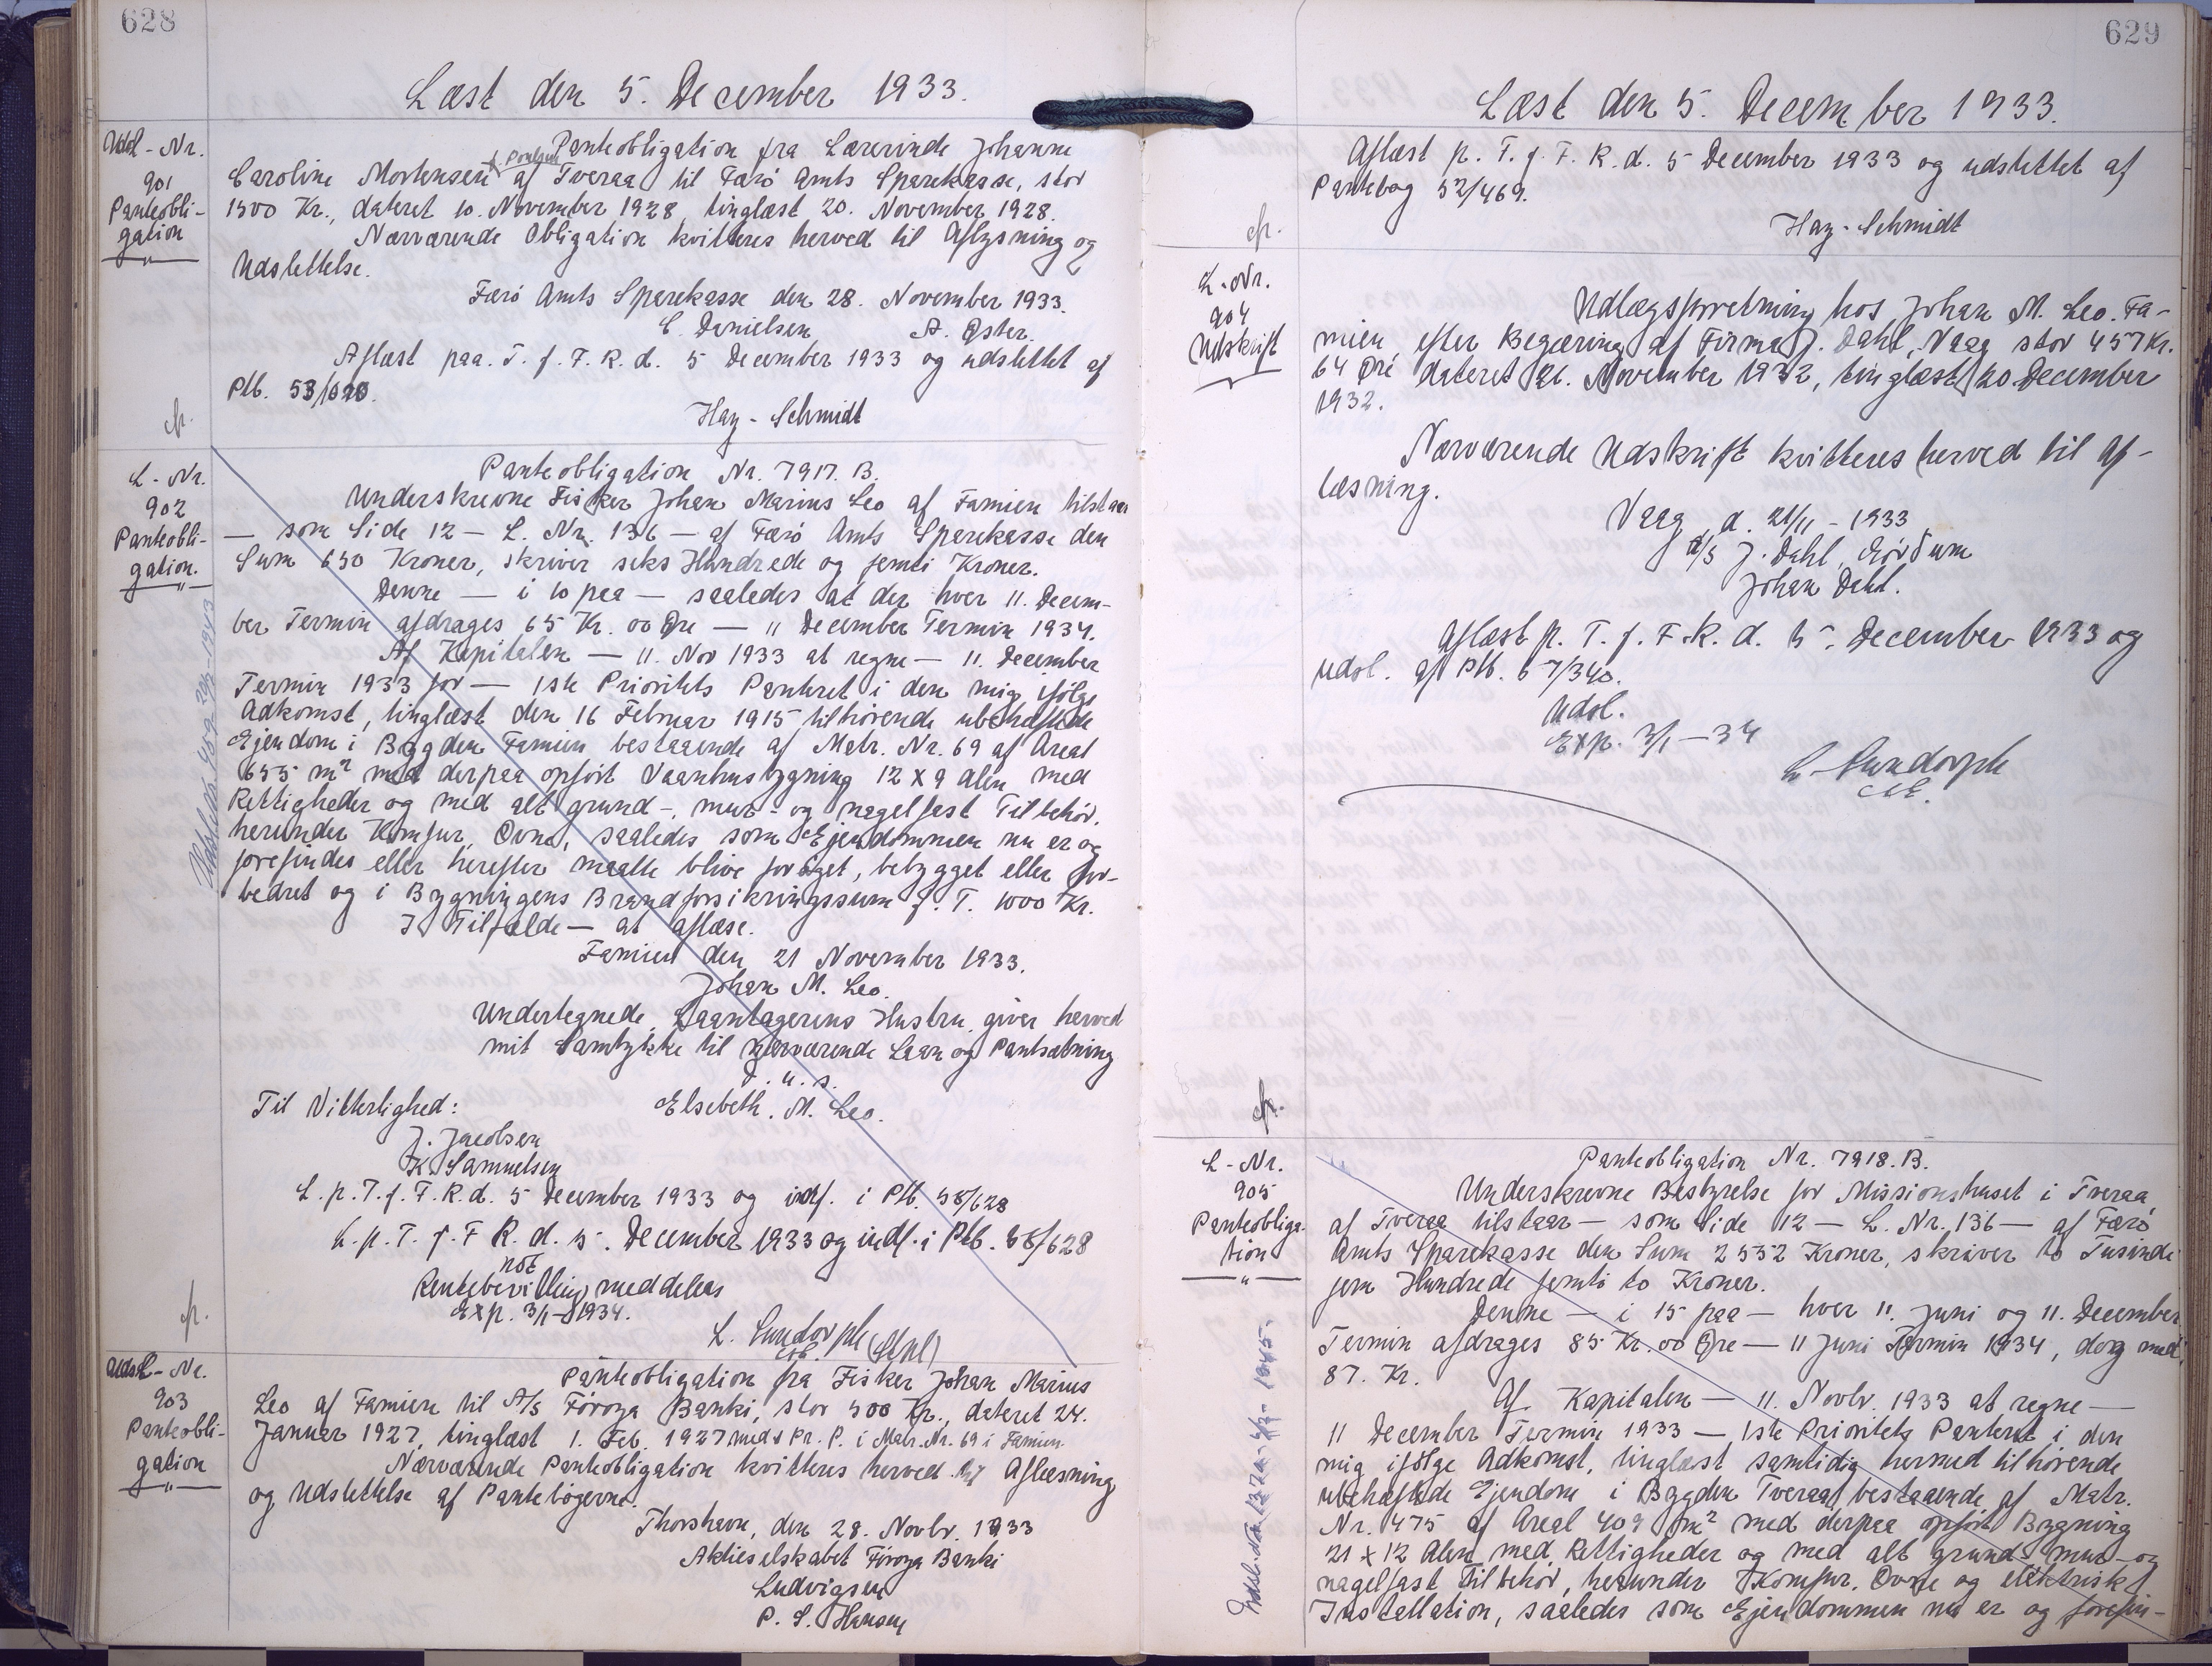 628
Læst den 5. December 1933.
Udsl - Nr.
901
Panteobli-
gation
Panteobligation fra Lærerinde Johanne
f. Poulsen
Caroline Mortensen af Tveraa til Færö Amts Sparekasse, stor
1500 Kr., dateret 10. November 1928, tinglæst 20. November 1928.
Nærværende Obligation kvitteres herved til Aflysning og
Udslettelse.
Færö Amts Sparekasse den 28. November 1933.
C. Danielsen A. Oster.
Aflæst paa. T. f. F. R. d. 5 December 1933 og udslettet af
Ptb. 53/620.
Hay - Schmidt
L - Nr.
902
Panteobli-
gation.
Panteobligation Nr. 7917. B.
Underskrevne Fisker Johan Marius Leo af Famien tilstaar
— som Side 12 — L. Nr. 136 — af Færö Amts Sparekasse den
Sum 650 Kroner, skriver seks Hundrede og femti Kroner.
Denne — i 10 paa — saaledes at der hver 11. Decem-
ber Termin afdrages 65 Kr. 00 Øre — 11 December Termin 1934.
Af Kapitalen — 11. Nov 1933 at regne — 11. December
Termin 1933 for — 1ste Prioritets Panteret i den mig ifölge
Adkomst, tinglæst den 16 Februar 1915 tilhörende ubehæftede
Ejendom i Bygden Famien bestaaende af Matr. Nr. 69 af Areal
655 m² med derpaa opfört Vaanhusbygning 12 x 9 Alen med
Rettigheder og med alt grund-, mur- og nagelfast Tilbehör,
herunder Komfur, Ovne, saaledes som Ejendommen nu er og
forefindes eller herefter maatte blive foröget, bebygget eller for-
bedret og i Bygningens Brandforsikringssum p. T. 1000 Kr.
I Tilfælde — at aflæse.
Famien den 21 November 1933.
Johan M. Leo.
Undertegnede, Laantagerens Hustru, giver herved
mit Samtykke til nærværende Laan og Pantsætning
D. u. s.
Til Vitterlighed: Elsebeth. M. Leo.
J. Jacobsen
K. Samuelsen
L. p. T. f. F. R. d. 5 December 1933 og indf. i Ptb. 58/628
L. p. T. f. F R. d. 5. December 1933 og indf. i Ptb. 58/628
not
Rentebevilling meddeles
Exp. 3/1 - 1934.
L. Sundorph
Udsl - Nr.
903
Panteobli-
gation
Panteobligation fra Fisker Johan Marius
Leo af Famien til A/s Föroya Banki, stor 500 Kr., dateret 24.
Januar 1927, tinglæst 1. Feb. 1927 med 1 Pr. P. i Matr. Nr. 69 i Famien.
Nærværende Panteobligation kvitteres herved til Aflæsning
og Udslettelse af Pantebögerne.
Thorshavn, den 28. Novbr. 1933
Aktieselskabet Föroya Banki
Ludvigsen
P. S. Hansen
629
Læst den 5. December 1933.
Aflæst p. T. f. F. R. d. 5 December 1933 og udslettet af
Pantebog 52/469.
Hay - Schmidt
L - Nr.
904
Udskrift
Udlægsforretning hos Johan M. Leo. Fa-
mien efter Begæring af Firma J. Dahl, Vaag stor 457 Kr.
64 Øre dateret 21. November 1932, tinglæst 20 December
1932.
Nærværende Udskrift kvitteres herved til Af-
læsning.
Vaag, d. 21/11 - 1933
A/s J. Dahl
Johan Dahl.
Aflæst p. T. f. F. R. d. 5. December 1933 og
udsl. af Ptb. 57/340.
Udsl.
Exp. 3/1 - 34
L. Sundorph
L - Nr.
905
Panteobliga-
tion
Panteobligation Nr. 7918. B.
Underskrevne Bestyrelse for Missionshuset i Tveraa
af Tveraa tilstaar — som Side 12 — L. Nr. 136 — af Færö
Amts Sparekasse den Sum 2552 Kroner, skriver to Tusinde
fem Hundrede femti to Kroner.
Denne — i 15 paa — hver 11. Juni og 11. December
Termin afdrages 85 Kr. 00 Øre — 11 Juni Termin 1934, dog med
87. Kr.
Af Kapitalen — 11. Novbr. 1933 at regne —
11 December Termin 1933 — 1ste Prioritets Panteret i den
mig ifölge Adkomst, tinglæst samtidig hermed tilhörende
ubehæftede Ejendom i Bygden Tveraa, bestaaende af Matr.
Nr. 475 af Areal 409 m² med derpaa opfört Bygning
21 x 12 Alen med Rettigheder og med alt grund- mur- og
nagelfast Tilbehör, herunder Komfur, Ovne og elektrisk
Installation, saaledes som Ejendommen nu er og forefin-